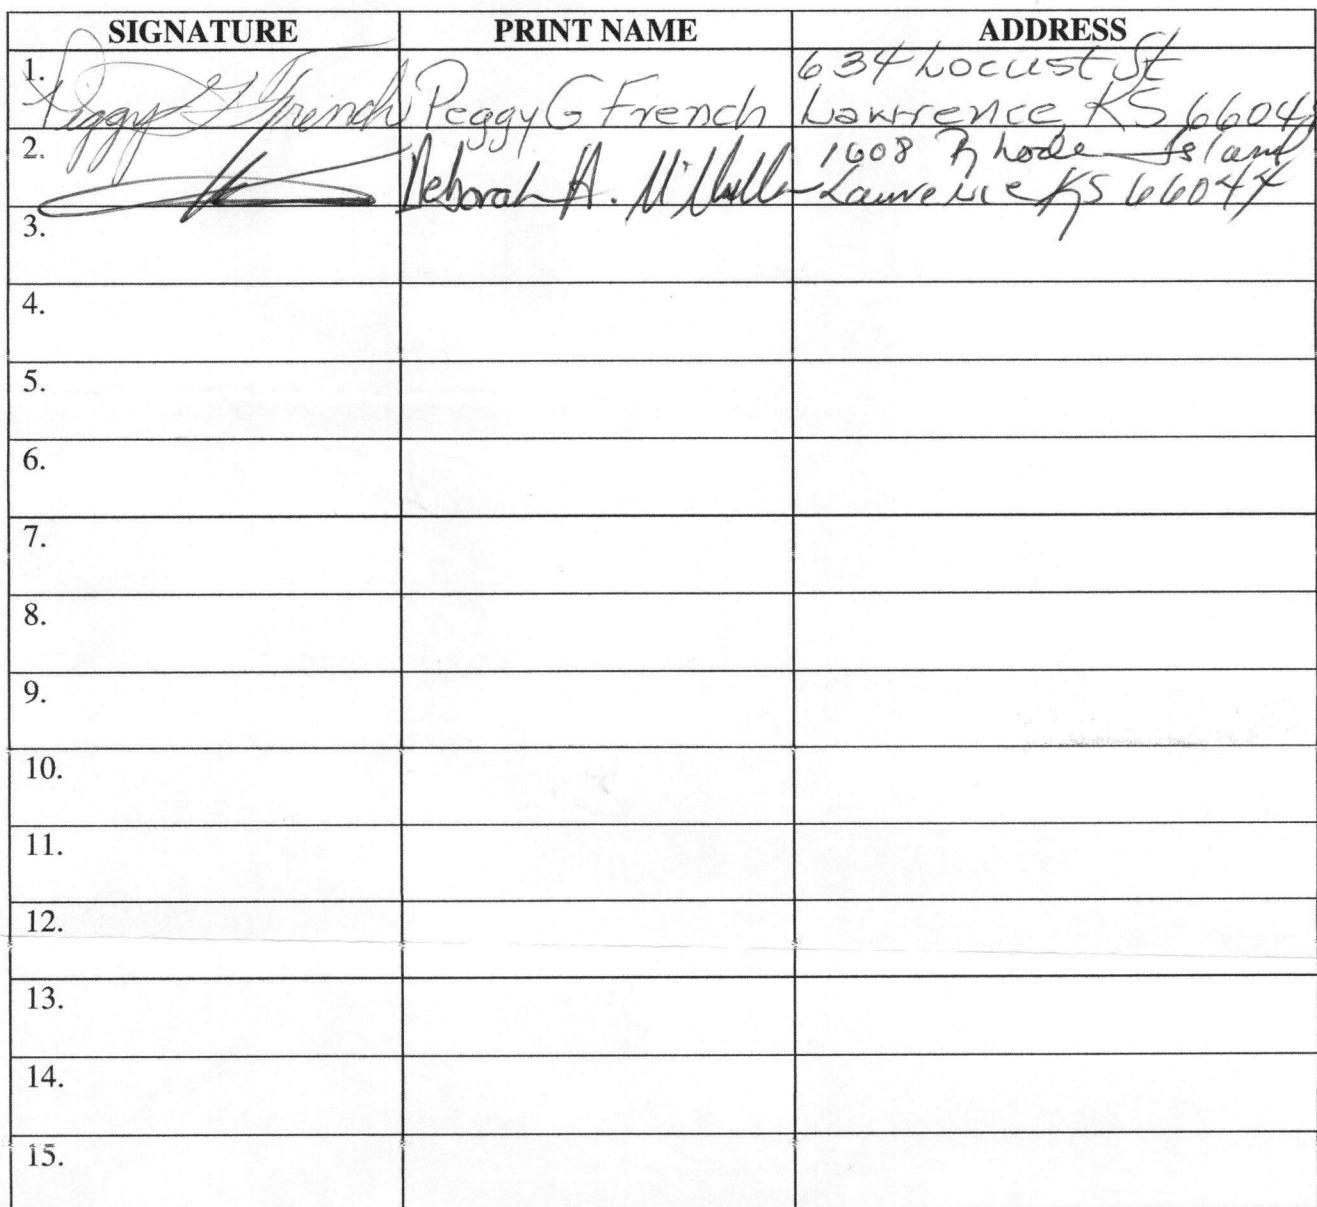 SIGNATURE PRINT NAME ADDRESS
1. Peggy G French Peggy G French 634 Locust St
Lawrence, KS 66044
2. Deborah A. 1608 Rhode Island
Lawrence KS 66044
3.
4.
5.
6.
7.
8.
9.
10.
11.
12.
13.
14.
15.